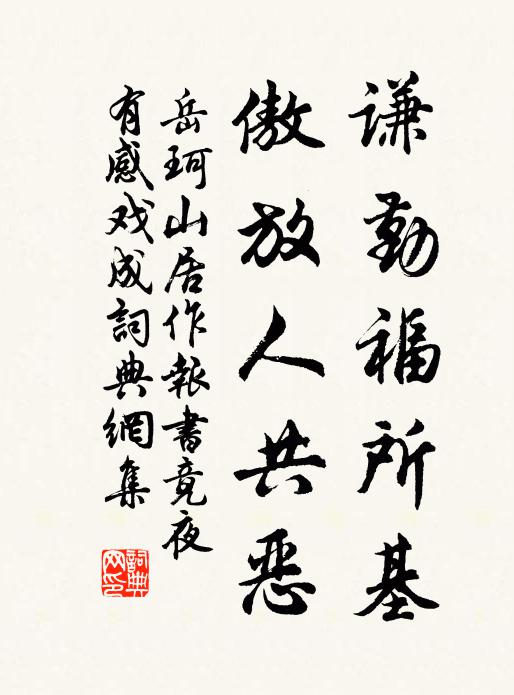 谦勤福所基
傲放人共恶
岳珂山居作报書竟夜
有感戏成詞典網集
詞典网印